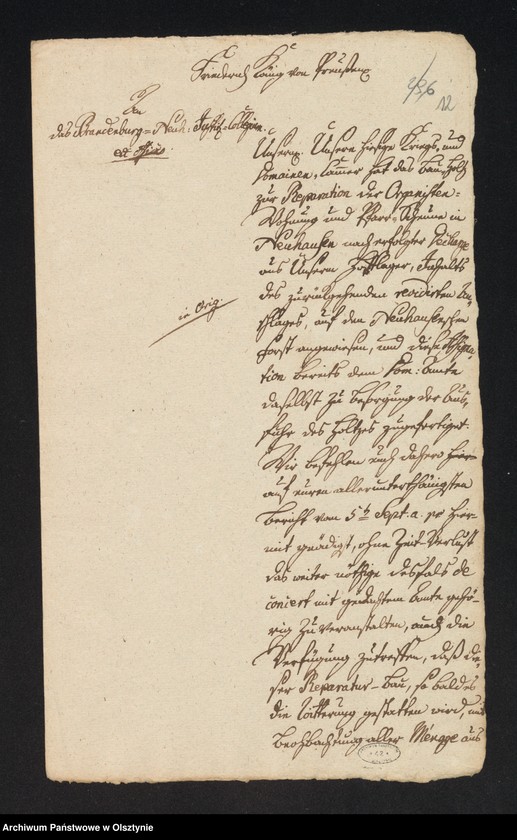 Friederich König von Preußen
236
12
An
das Brandenburg= Neuh. Justitz=Collegium.
ex officio
Unsern. Unsere hiesige Kriegs, und
Domainen, Cammer hat das Bau=Holtz
zur Reparation der Organisten=
Wohnung und Pfarr=Scheune in
Neuhausen nach erfolgter
aus Unserm Hofflager, Inhalts
des zurückgehenden revidirten An-
schlages, auf den Neuhausenschen
Forst angewiesen, und diese Assigna-
tion bereits dem Dom: Amte
daselbst zu besorgung der Aus,
fuhr des Holtzes zugefertiget.
Wir befehlen euch dahero hier
auf euren allerunterthänigsten
Bericht vom 5t Sept. a. pr. hier-
mit gnädigst, ohne Zeit=Verlust
das weiter nöthige desfals de
concert mit gedachtem Amte gehö-
rig zu veranstalten, auch die
Verfügung zu treffen, daß die-
ser Reparatur=Bau, so bald es
die Witterung gestatten wird, mit
Beobachtung aller Menage aus
in Orig.
Archiwum Państwowe w Olsztynie